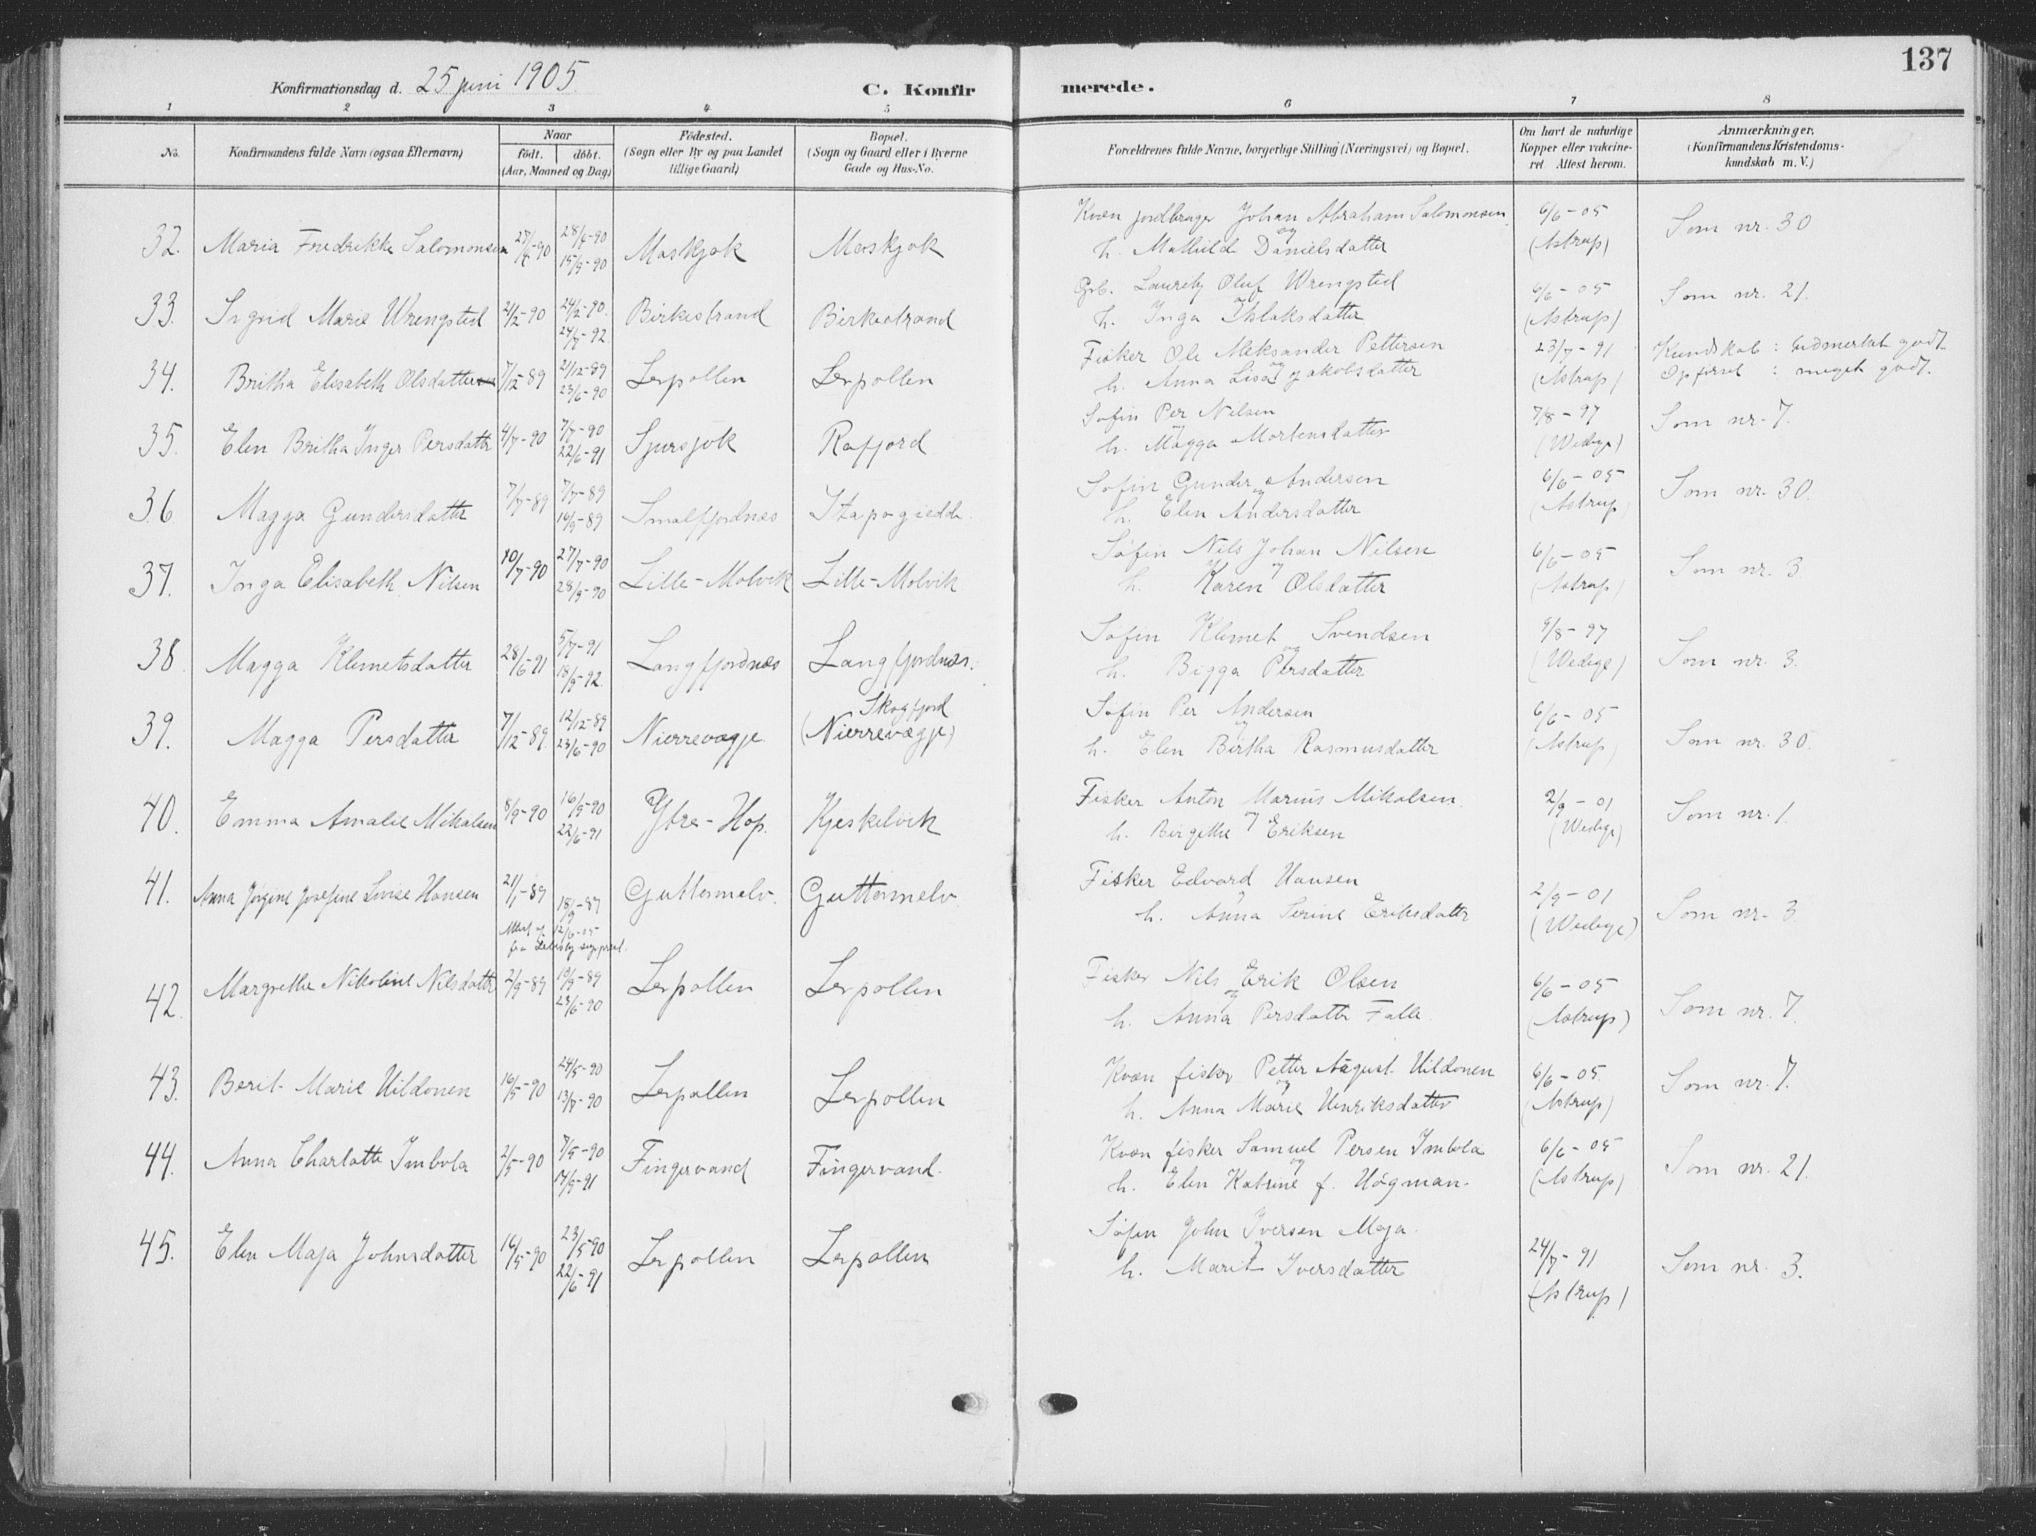 137
Konfirmationsdag d. 25 juni 1905.
C. Konfirmerede.
1 2 3 4 5 6 7 8
No. Konfirmandens fulde Navn (ogsaa Efternavn)
Naar
födt. döbt.
(Aar, Maaned og Dag)
Födested.
(Sogn eller By og paa Landet
tillige Gaard)
Bopæl.
(Sogn og Gaard eller i Byerne
Gade og Hus-No.
Forældrenes fulde Navne, borgerlige Stilling (Næringsvei) og Bopæl.
Om havt de naturlige
Kopper eller vakcine-
ret Attest herom.
Anmærkninger.
(Konfirmandens Kristendoms-
kundskab m. V.)
32. Maria Fredrikke Salomonsen 28/4-90 Maskjok Maskjok Kvæn jordbruger Johan Abraham Salomonsen 6/6-05 Som nr. 30
15/9-90 og
h. Mathilde Danielsdatter (Astrup)
33. Ingrid Marie Wrengsted 2/2-90 24/2-90. Birkestrand Birkestrand Grb. Lauretz Oluf Wrengsted 6/6-05 Som nr. 21.
24/7-92 og
h. Inga Aslaksdatter (Astrup)
34. Britha Elisabeth Olsdatter 7/12-89 21/12-89 Lerpollen Lerpollen Fisker Ole Aleksander Pettersen 23/7-91 Kundskab: udmerket godt
23/6-90 og
h. Anna Lisa Jakobsdatter (Astrup) Opførsel: meget godt.
35. Elen Britha Inger Persdatter 4/7-90 7/7-90 Sjursjok Rafjord Søfin Per Nilsen 7/8-97 Som nr. 7.
22/6-91 og
h. Magga Mortensdatter (Wedege)
36 Magga Gundersdatter 7/7-89 7/7-89 Smalfjordnæs Itapagiedde. Søfin Gunder Andersen 6/6-05 Som nr. 30.
16/9-89 og
h. Elen Andersdatter (Astrup)
37. Inga Elisabeth Nilsen 10/7-90 27/7-90 Lille-Molvik Lille-Molvik Søfin Nils Johan Nilsen 6/6-05 Som nr. 3
28/9-90 og
h. Karen Olsdatter (Astrup)
38 Magga Klemetsdatter 28/6-91 5/7-91 Langfjordnæs Langfjordnæs. Søfin Klemet Svendsen 9/8-97 Som nr. 3.
18/9-92. og
h. Bigga Persdatter (Wedege)
39. Magga Persdatter 7/12-89. 12/12-89 Nierrevagge Skogfjord Søfin Per Andersen 6/6-05 Som nr. 30.
23/6-90 (Nierrevagge) og
h. Elen Birtha Rasmusdatter (Astrup)
40. Emma Amalie Mikalsen 8/9-90 16/9-90 Ytre-Hop. Kjeskelvik Fisker Anton Marius Mikalsen. 2/9-01 Som nr. 1.
22/6-91 og
h. Birgithe Eriksen (Wedege)
41. Anna Jørgine Josefine Lovise Hansen 21/1-89 18/9-89 Guttormelv. Guttormelv. Fisker Edvard Hansen 2/9-01 Som nr. 3
og
h. Anna Serine Eriksdatter (Wedege)
12/6-05
fra Lebesby sognepræst.
42. Margrethe Nikoline Nilsdatter 2/9-89 19/9-89 Lerpollen Lerpollen Fisker Nils Erik Olsen 6/6-05 Som nr. 7.
23/6-90 og
h. Anna Persdatter Falk. (Astrup)
43. Berit Marie Uildonen 16/5-90 24/5-90 Lerpollen Lerpollen Kvæn fisker Petter August Uildonen 6/6-05. Som nr. 7.
13/7-90 og
h. Anna Marie Henriksdatter (Astrup)
44. Anna Charlotte Imbola 2/5-90 7/5-90 Fingervand Fingervand. Kvæn fisker Samuel Persen Imbola 6/6-05 Som nr. 21.
14/9-91 og
h. Elen Katrine f. Högman. (Astrup)
45. Elen Maja Johnsdatter 16/5-90 23/5-90 Lerpollen Lerpollen Søfin John Iversen Maja. 24/7-91 Som nr. 3.
22/6-91 og
h. Marit Iversdatter (Astrup)